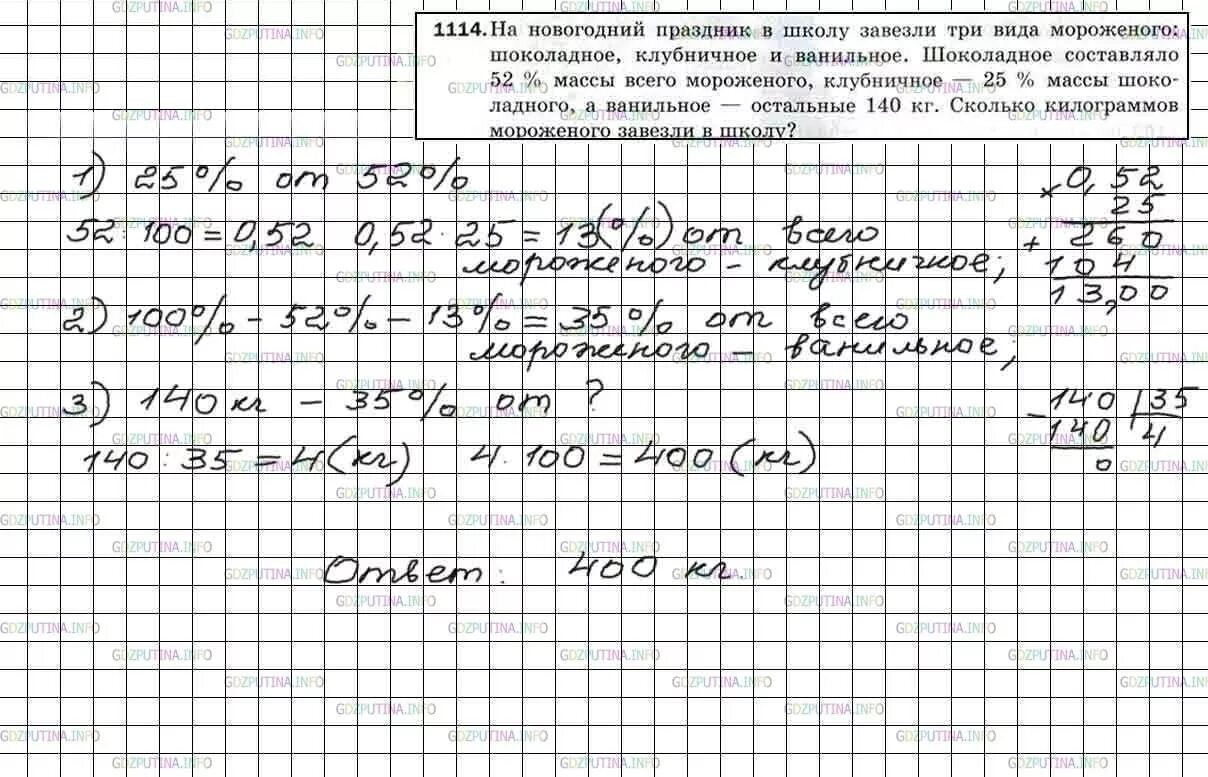 1114. На новогодний праздник в школу завезли три вида мороженого:
шоколадное, клубничное и ванильное. Шоколадное составляло
52 % массы всего мороженого, клубничное — 25 % массы шоко-
ладного, а ванильное — остальные 140 кг. Сколько килограммов
мороженого завезли в школу?
1) 25% от 52%
52 : 100 = 0,52 0,52 · 25 = 13(%) от всего
мороженого - клубничное;
× 0,52
25
+ 260
104
13,00
2) 100% - 52% - 13% = 35% от всего
мороженого - ванильное;
3) 140 кг - 35% от ?
140 : 35 = 4(кг) 4 · 100 = 400 (кг)
- 140 | 35
140 4
0
Ответ: 400 кг.
GDZPUTINA.INFO